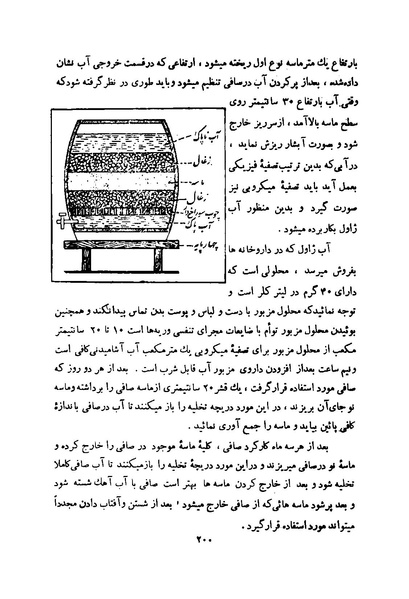 بارتفاع یك مترماسه نوع اول ریخته میشود ، ارتفاعی که درقسمت خروجی آب نشان
داده‌شده ، بعداز پرکردن آب درصافی تنظیم میشود وباید طوری در نظرگرفته شود‌که
وقتی آب بارتفاع ۳۰ سانتیمتر روی
سطح ماسه بالاآمد، ازسرریز خارج
شود و بصورت آبشار ریزش نماید ،
درآبی‌که بدین ترتیب‌تصفیهٔ فیزیکی
بعمل آید باید تصفیهٔ میکروبی نیز
صورت گیرد و بدین منظور آب
ژاول بکاربرده میشود .
آب ناپاك
زغال
ماسه
زغال
چوب سوراخدار
آب پاك
چهارپایه
آب ژاول که در داروخانه ها
بفروش میرسد ، محلولی است که
دارای ۴۰ گرم در لیتر کلر است و
توجه نمائیدکه محلول مزبور با دست و لباس و پوست بدن تماس پیدانکند و همچنین
بوئیدن محلول مزبور توأم با ضایعات مجرای تنفسی وریه‌ها است ۱۰ تا ۲۰ سانتیمتر
مکعب از محلول مزبور برای تصفیهٔ میکروبی یك مترمکعب آب آشامیدنی‌کافی است
ونیم ساعت بعداز افزودن داروی مزبور آب قابل شرب است . بعد از هر دو روز که
صافی مورد استفاده قرارگرفت ، یك قشر ۲۰ سانتیمتری ازماسه صافی را برداشته‌وماسه
نوجای‌آن بریزند ، در این مورد دریچه تخلیه را باز میکنند تا آب درصافی باندازهٔ
کافی پائین بیاید و ماسه را جمع آوری نمائید .
بعد از هرسه ماه کارکرد صافی ، کلیهٔ ماسهٔ موجود در صافی را خارج کرده و
ماسهٔ نو درصافی میریزند و دراین مورد دریچهٔ تخلیه را بازمیکنند تا آب صافی‌کاملا
تخلیه شود و بعد از خارج کردن ماسه ها بهتر است صافی با آب آهك شسته شود
و بعد پرشود ماسه هائی‌که از صافی خارج میشود ' بعد از شستن وآفتاب دادن مجدداً
میتواند مورد استفاده قرارگیرد .
۲۰۰